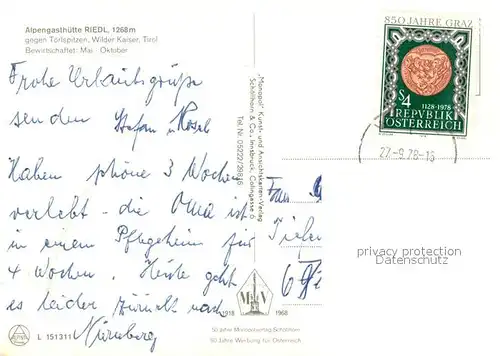 Alpengasthütte RIEDL, 1268m
gegen Törlspitzen, Wilder Kaiser, Tirol
Bewirtschaftet: Mai - Oktober
Frohe Urlaubsgrüße
senden Stefan u. Rosel
Haben schöne 3 Wochen
verlebt - die Oma ist
in einem Pflegeheim für
4 Wochen. Heute geht
es leider zurück nach
Nürnberg
L 151311
"Monopol" Kunst- und Ansichtskarten-Verlag
Schöllhorn & Co., Innsbruck, Colingasse 6
Tel. Nr. 05222/26816
M V
1918 1968
50 Jahre Monopolverlag-Schöllhorn
50 Jahre Werbung für Österreich
850 JAHRE GRAZ
S4
1128-1978
REPUBLIK
ÖSTERREICH
27-9.78-16
privacy protection
Datenschutz